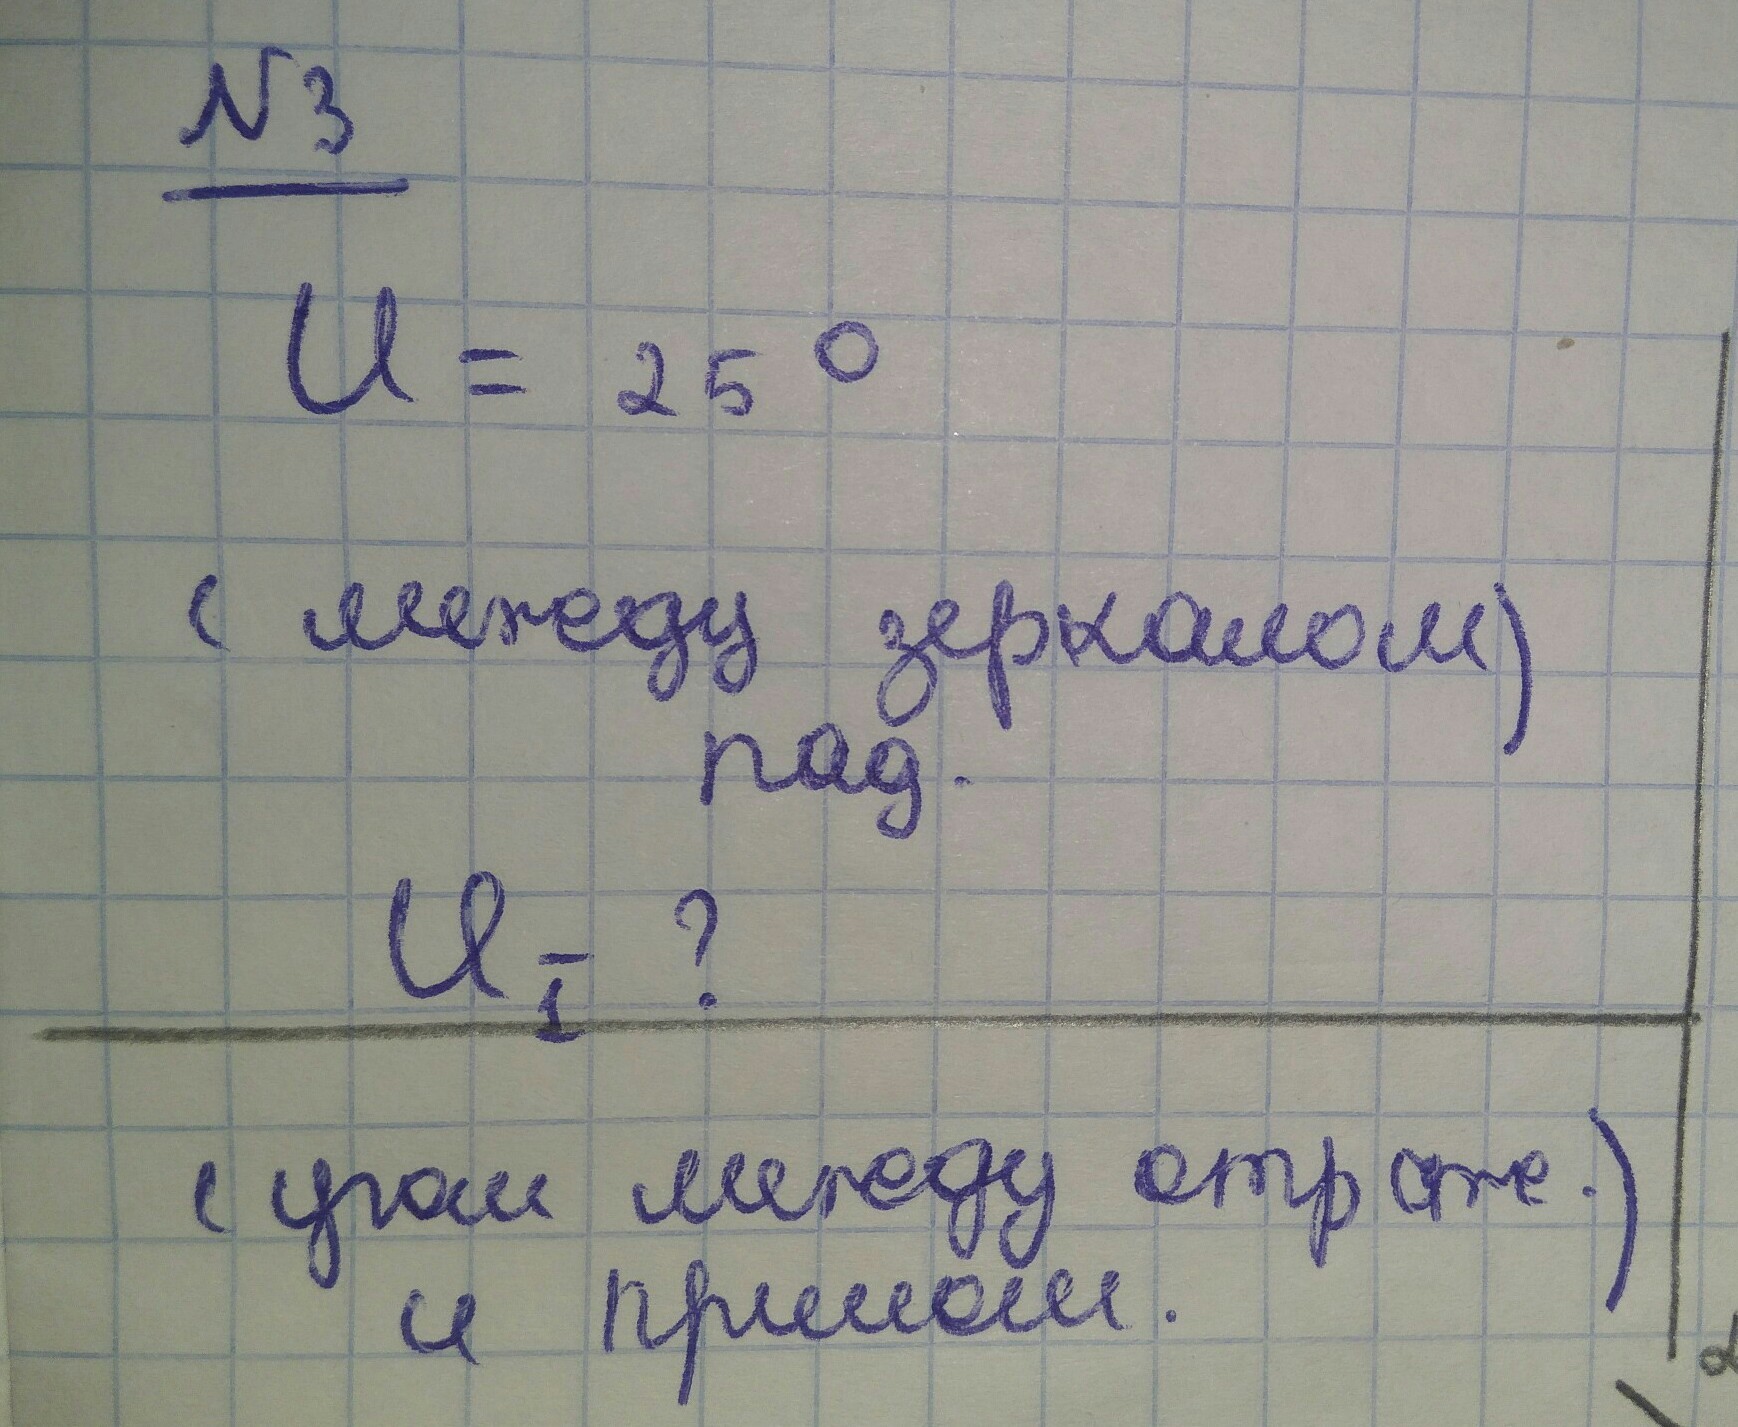 N3
U = 25°
(между зеркалом)
пад.
U1 - ?
(угол между отраж.)
и прямом.
2